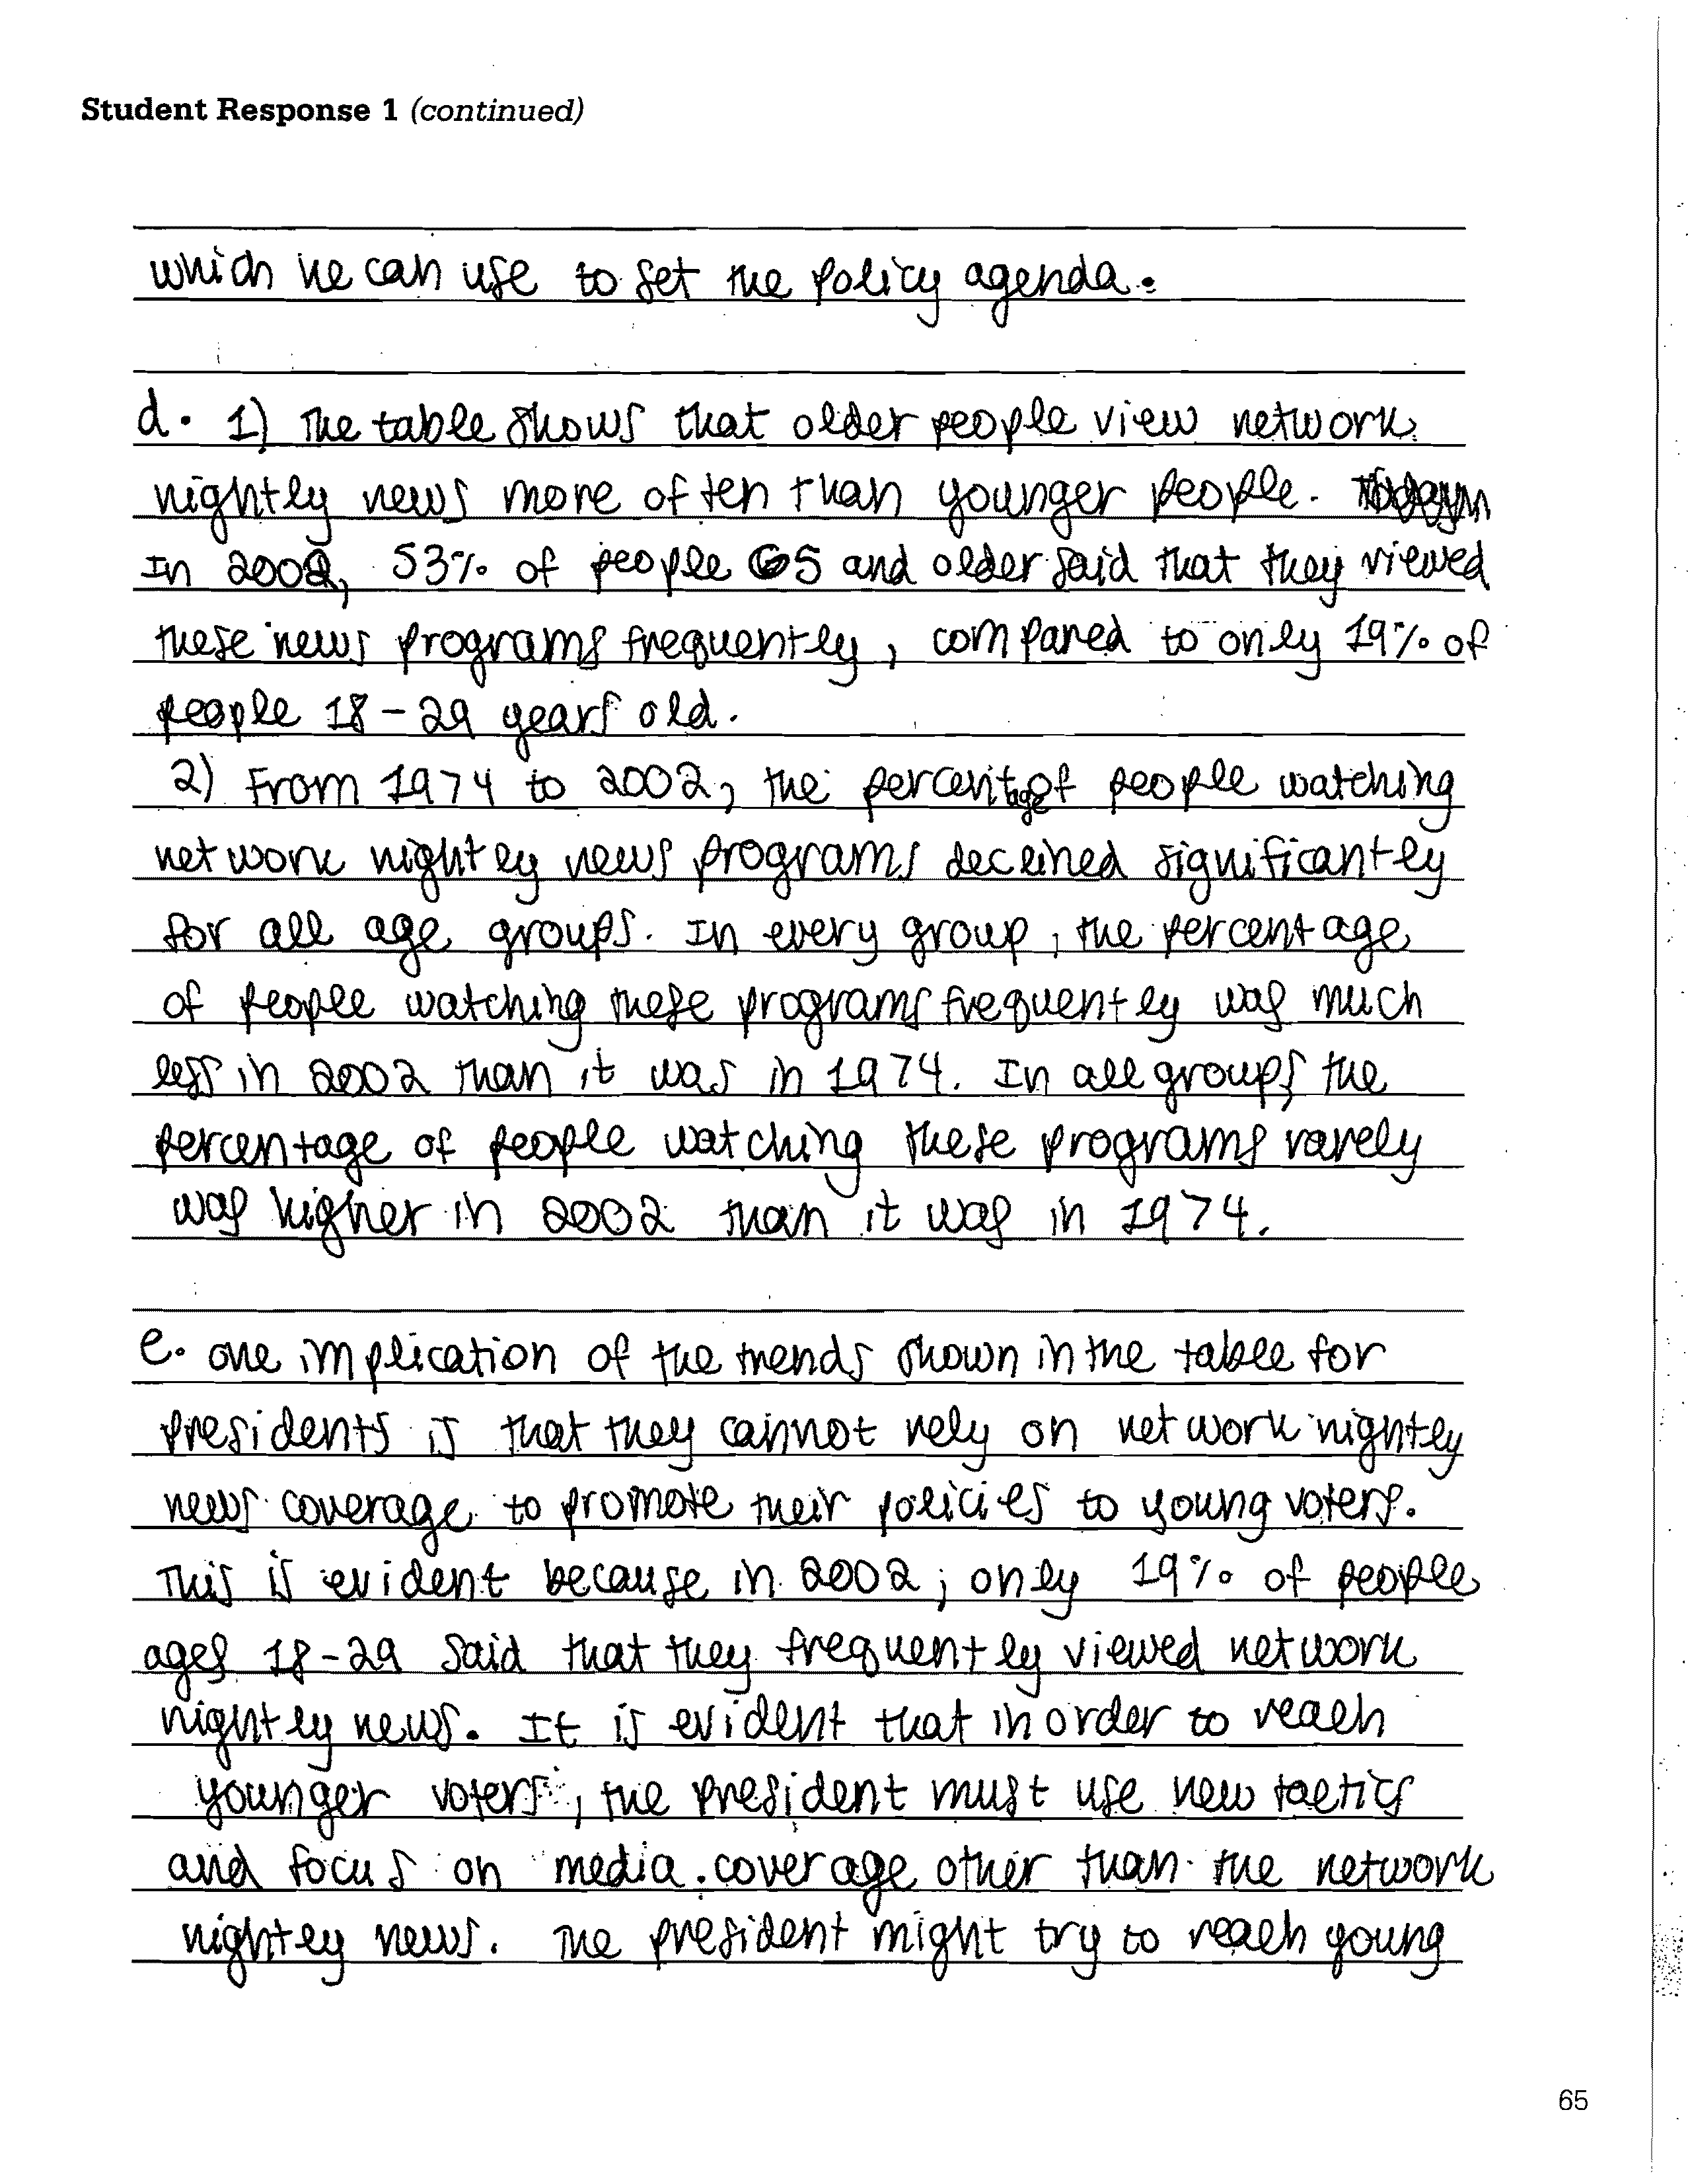 Student Response 1 (continued)
which he can use to set the policy agenda.
d. 1) The table shows that older people view network
nightly news more often than younger people.
In 2002, 53% of people 65 and older said that they viewed
these news programs frequently, compared to only 19% of
people 18-29 years old.
2) From 1974 to 2002, the percentage of people watching
network nightly news programs declined significantly
for all age groups. In every group, the percentage
of people watching these programs frequently was much
less in 2002 than it was in 1974. In all groups, the
percentage of people watching these programs rarely
was higher in 2002 than it was in 1974.
e. one implication of the trends shown in the table for
presidents is that they cannot rely on network nightly
news coverage to promote their policies to young voters.
This is evident because in 2002, only 19% of people
ages 18-29 said that they frequently viewed network
nightly news. It is evident that in order to reach
younger voters, the president must use new tactics
and focus on media coverage other than the network
nightly news. The president might try to reach young
65